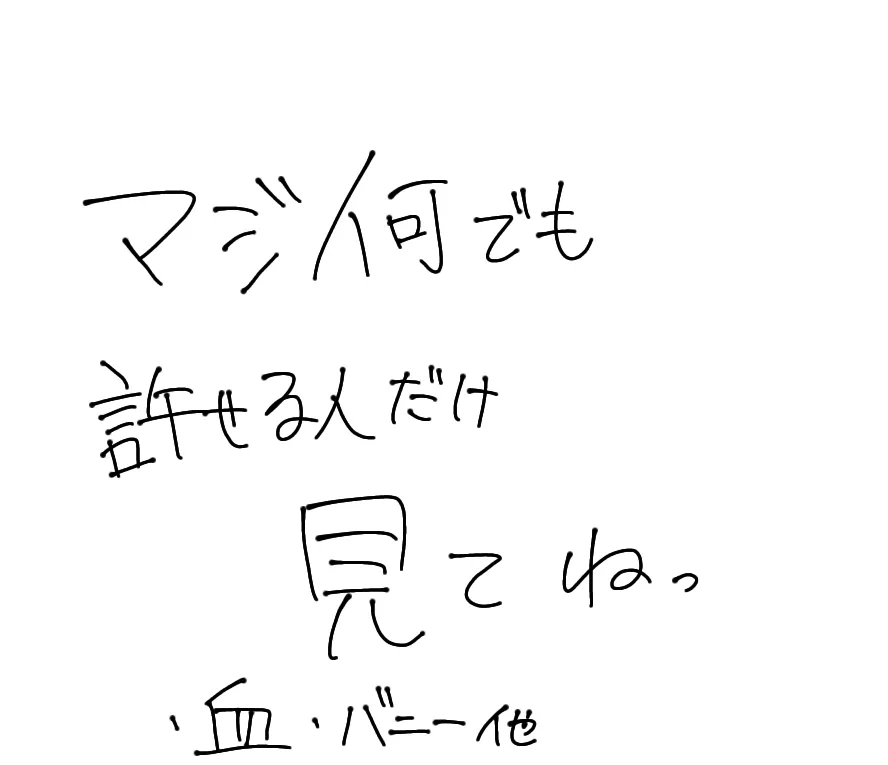 マジ何でも
許せる人だけ
見てねっ
・血・バニー他